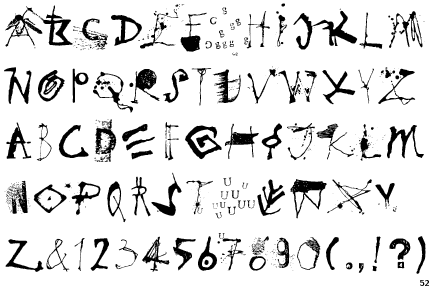 ABCDEFGHIJKLM
NOPQRSTUVWXYZ
ABCDEFGHIJKLM
NOPQRSTUVWXY
Z&1234567890(.,!?)
52